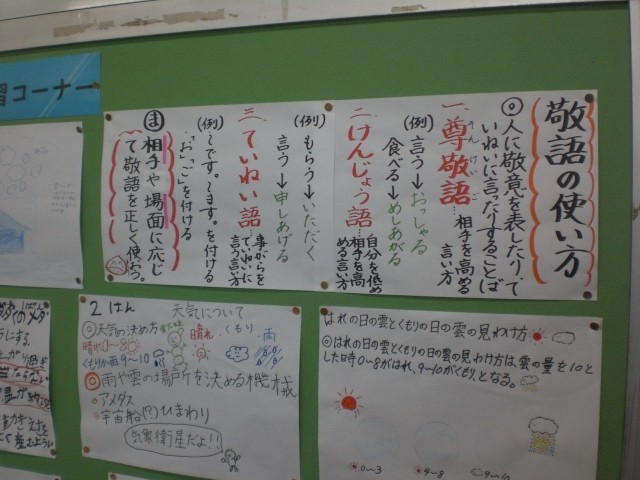 習コーナー
敬語の使い方
◎人に敬意を表したり、て
いねいに言ったりすることば
一、尊敬語…相手を高める
言い方
そんけいご
(例)
言う→おっしゃる
食べる→めしあがる
二、けんじょう語…自分を低め
相手を高
める言い方
(例)
もらう→いただく
言う→申しあげる
三、ていねい語
事がらを
ていねいに
言う言い方
(例)
〜です。〜ます。を付ける
「お」、「ご」を付ける
ま 相手や場面に応じ
て敬語を正しく使おう。
2はん 天気について
◎天気の決め方
晴れ0〜8
くもりか雨9〜10
晴れ くもり 雨
◎雨や雲の場所を決める機械
アメダス
宇宙船(?)ひまわり
気象衛星だよ!!
はれの日の雲とくもりの日の雲の見わけ方
◎はれの日の雲とくもりの日の雲の見わけ方は、雲の量を10と
した時0〜8がはれ、9〜10がくもり、となる。
0〜3
9〜8